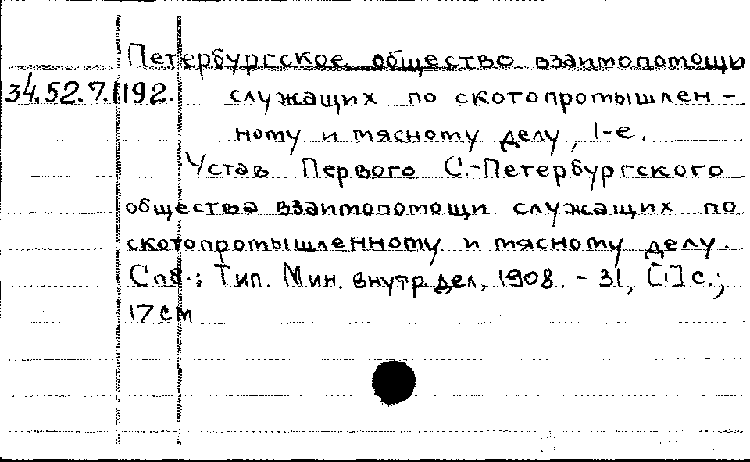 Петербургское общество взаимопомощи
34.52.7.192. служащих по скотопромышлен-
ному и мясному делу, 1-е.
Устав Первого С.-Петербургского
общества взаимопомощи служащих по
скотопромышленному и мясному делу.
Спб.: Тип. Мин. внутр. дел, 1908. - 31, [1] с.;
17 см